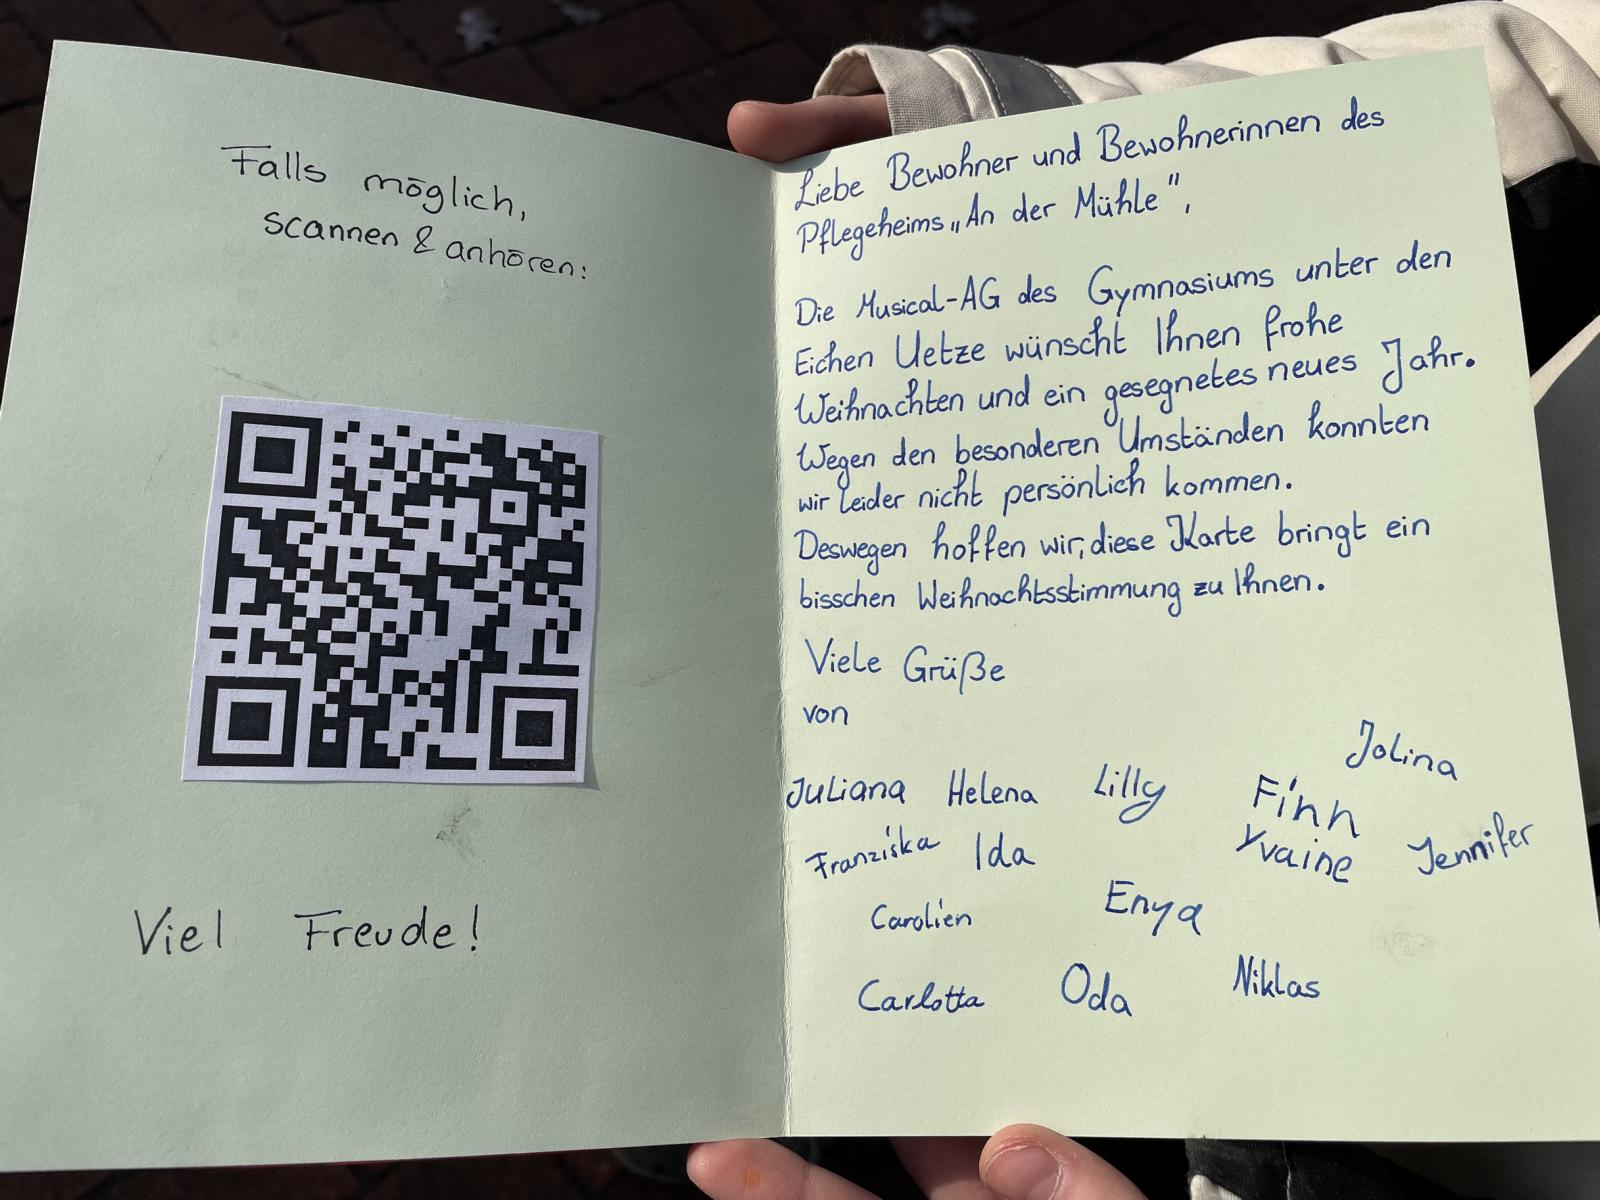 Falls möglich,
scannen & anhören:
Viel Freude!
Liebe Bewohner und Bewohnerinnen des
Pflegeheims „An der Mühle",
Die Musical-AG des Gymnasiums unter den
Eichen Uetze wünscht Ihnen frohe
Weihnachten und ein gesegnetes neues Jahr.
Wegen den besonderen Umständen konnten
wir leider nicht persönlich kommen.
Deswegen hoffen wir, diese Karte bringt ein
bisschen Weihnachtsstimmung zu Ihnen.
Viele Grüße
von
Jolina
Juliana Helena Lilly Finn
Franziska Ida Yvaine Jennifer
Carolien Enya
Carlotta Oda Niklas